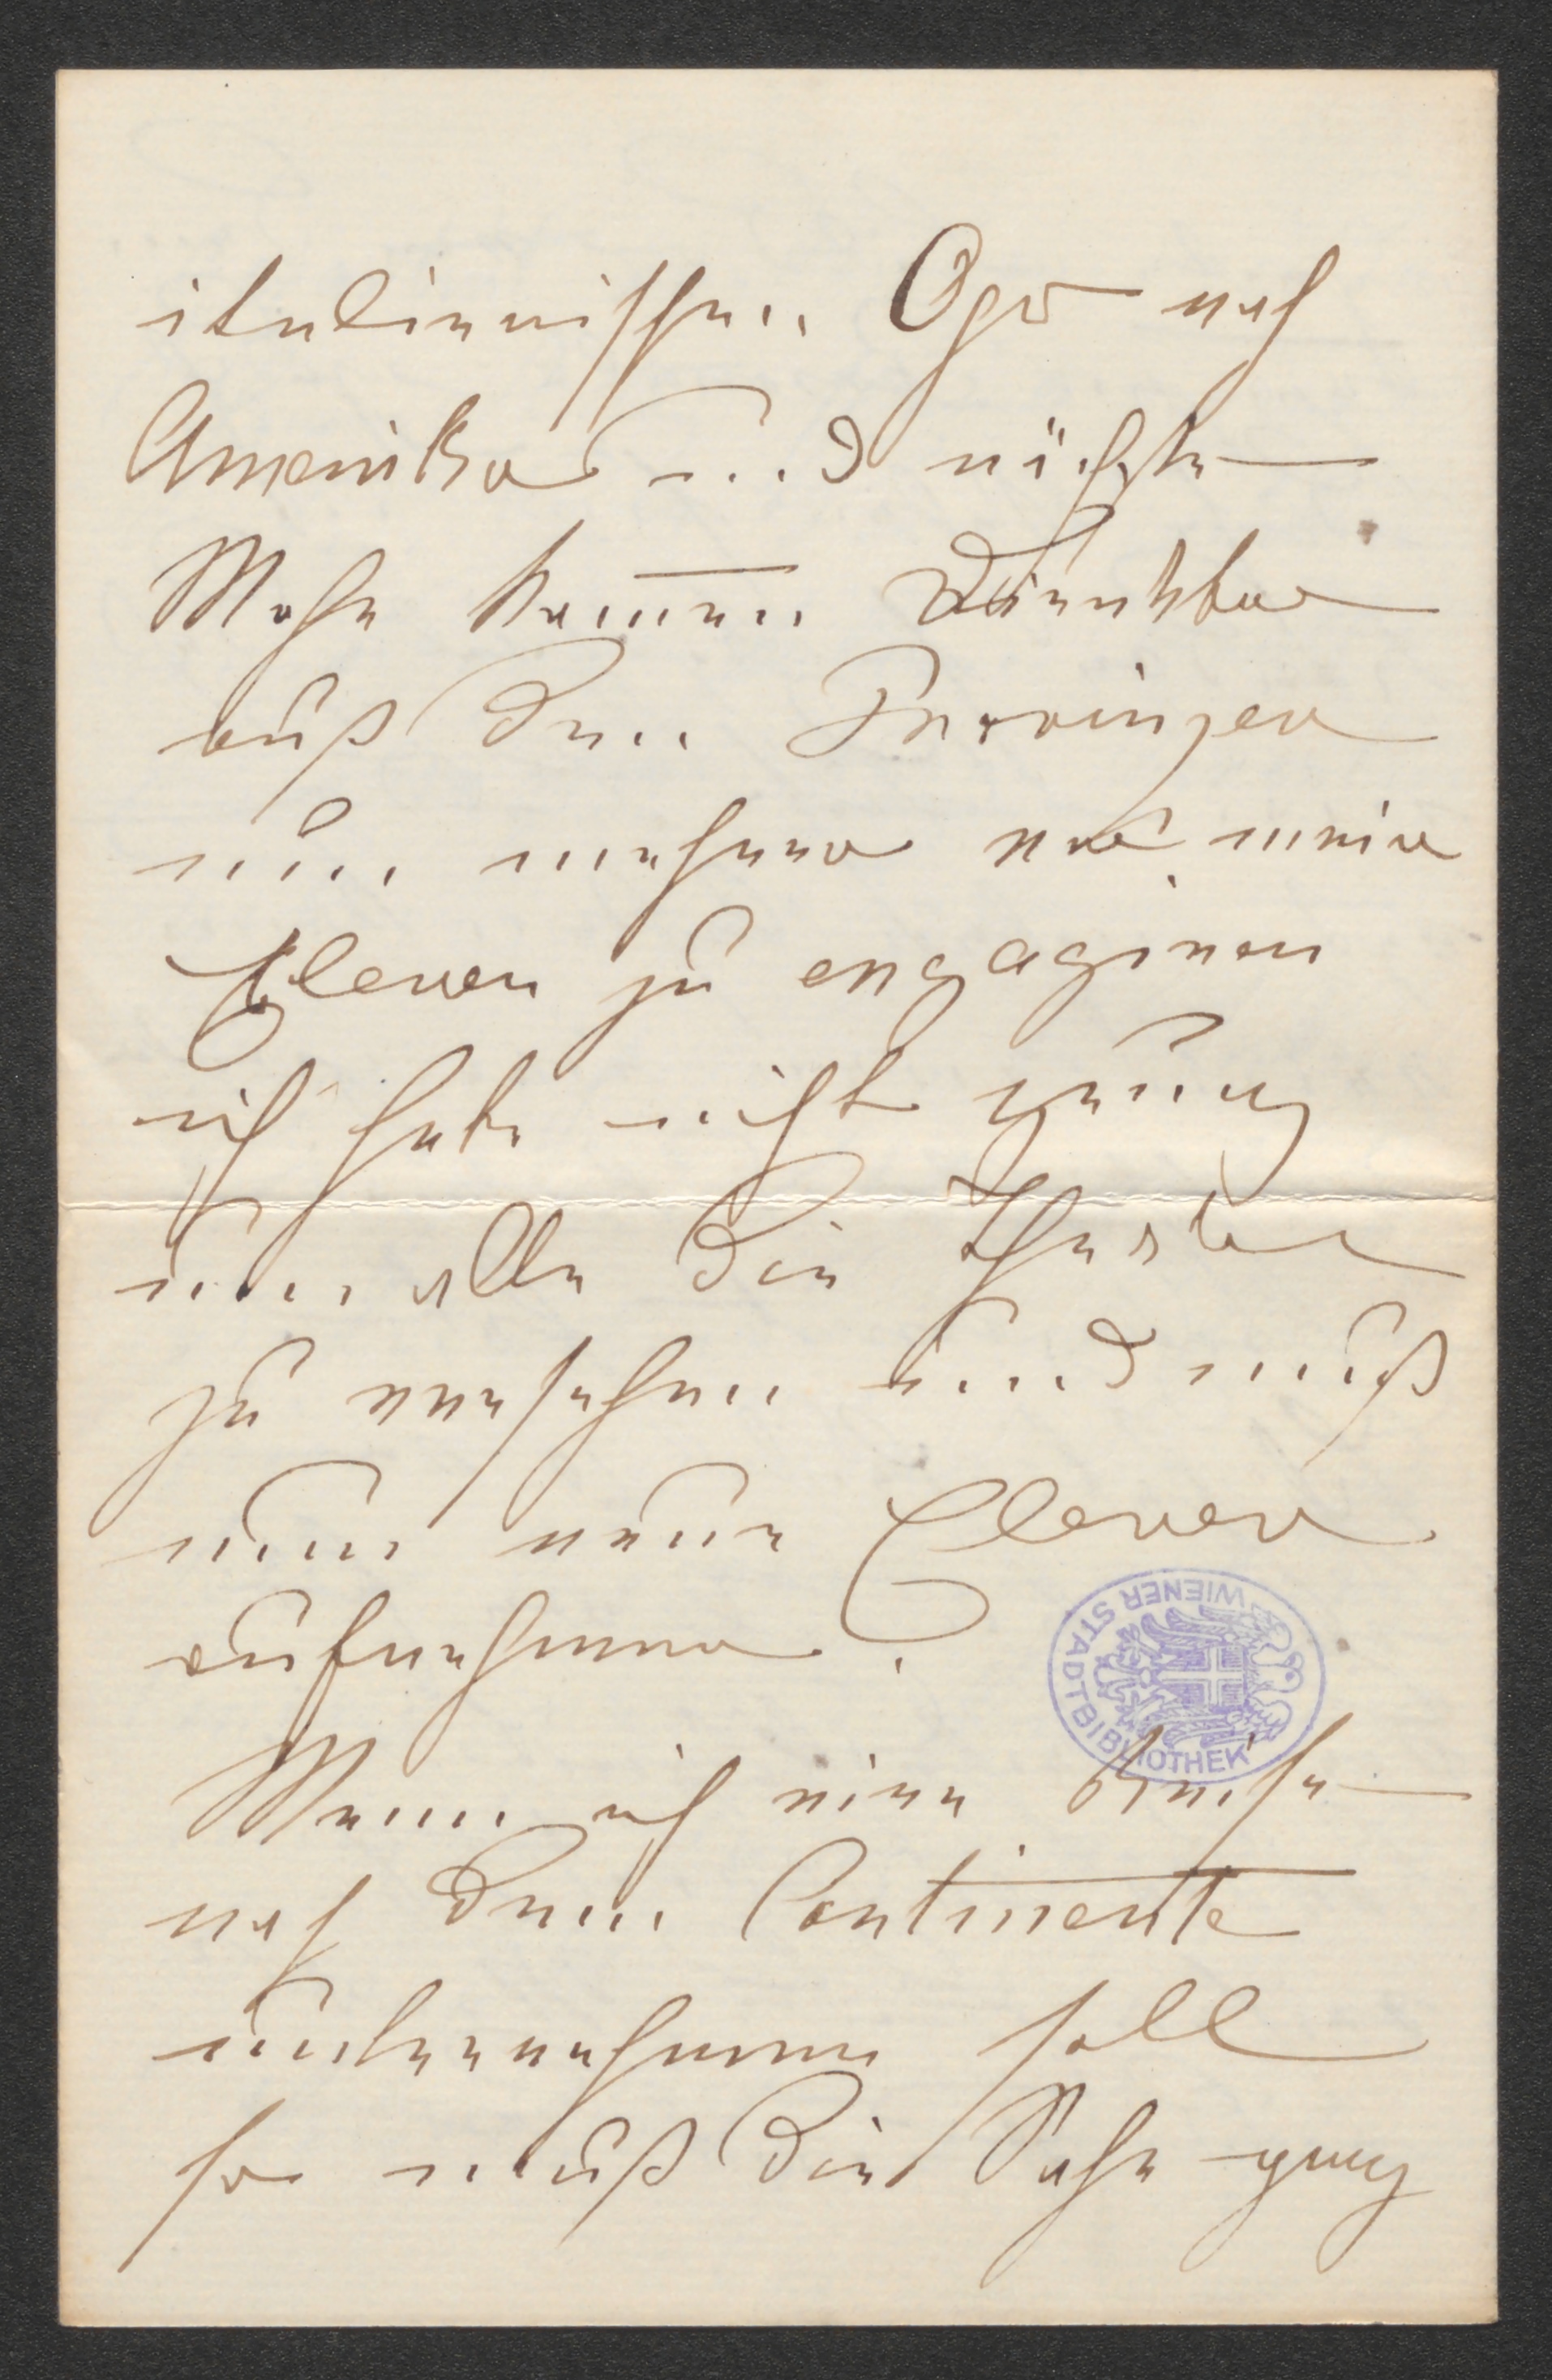 italienischen Oper nach
Amerika und nächste
Woche kommen Direktoren
auß den Provinzen
um mehrere von meinen
Eleven zu engagiren
ich habe nicht genug
um alle die Theater
zu versehen und muß
nun neue Eleven
aufnehmen.
WIENER STADTBIBLIOTHEK
Wenn ich eine Reise
nach dem Continente
unternehmen soll
so muß die Sache ganz